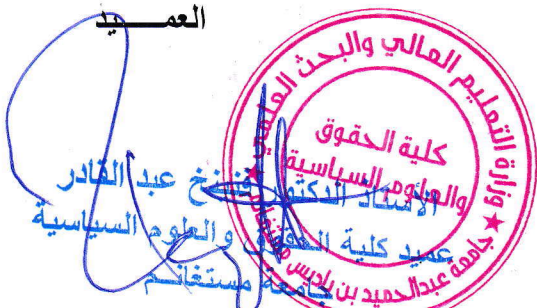 العمـــــيد
وزارة التعليم العالي والبحث العلمي
جامعة عبدالحميد بن باديس
كلية الحقوق
والعلوم السياسية
الأستاذ الدكتور عبد القادر
عميد كلية الحقوق والعلوم السياسية
جامعة مستغانم